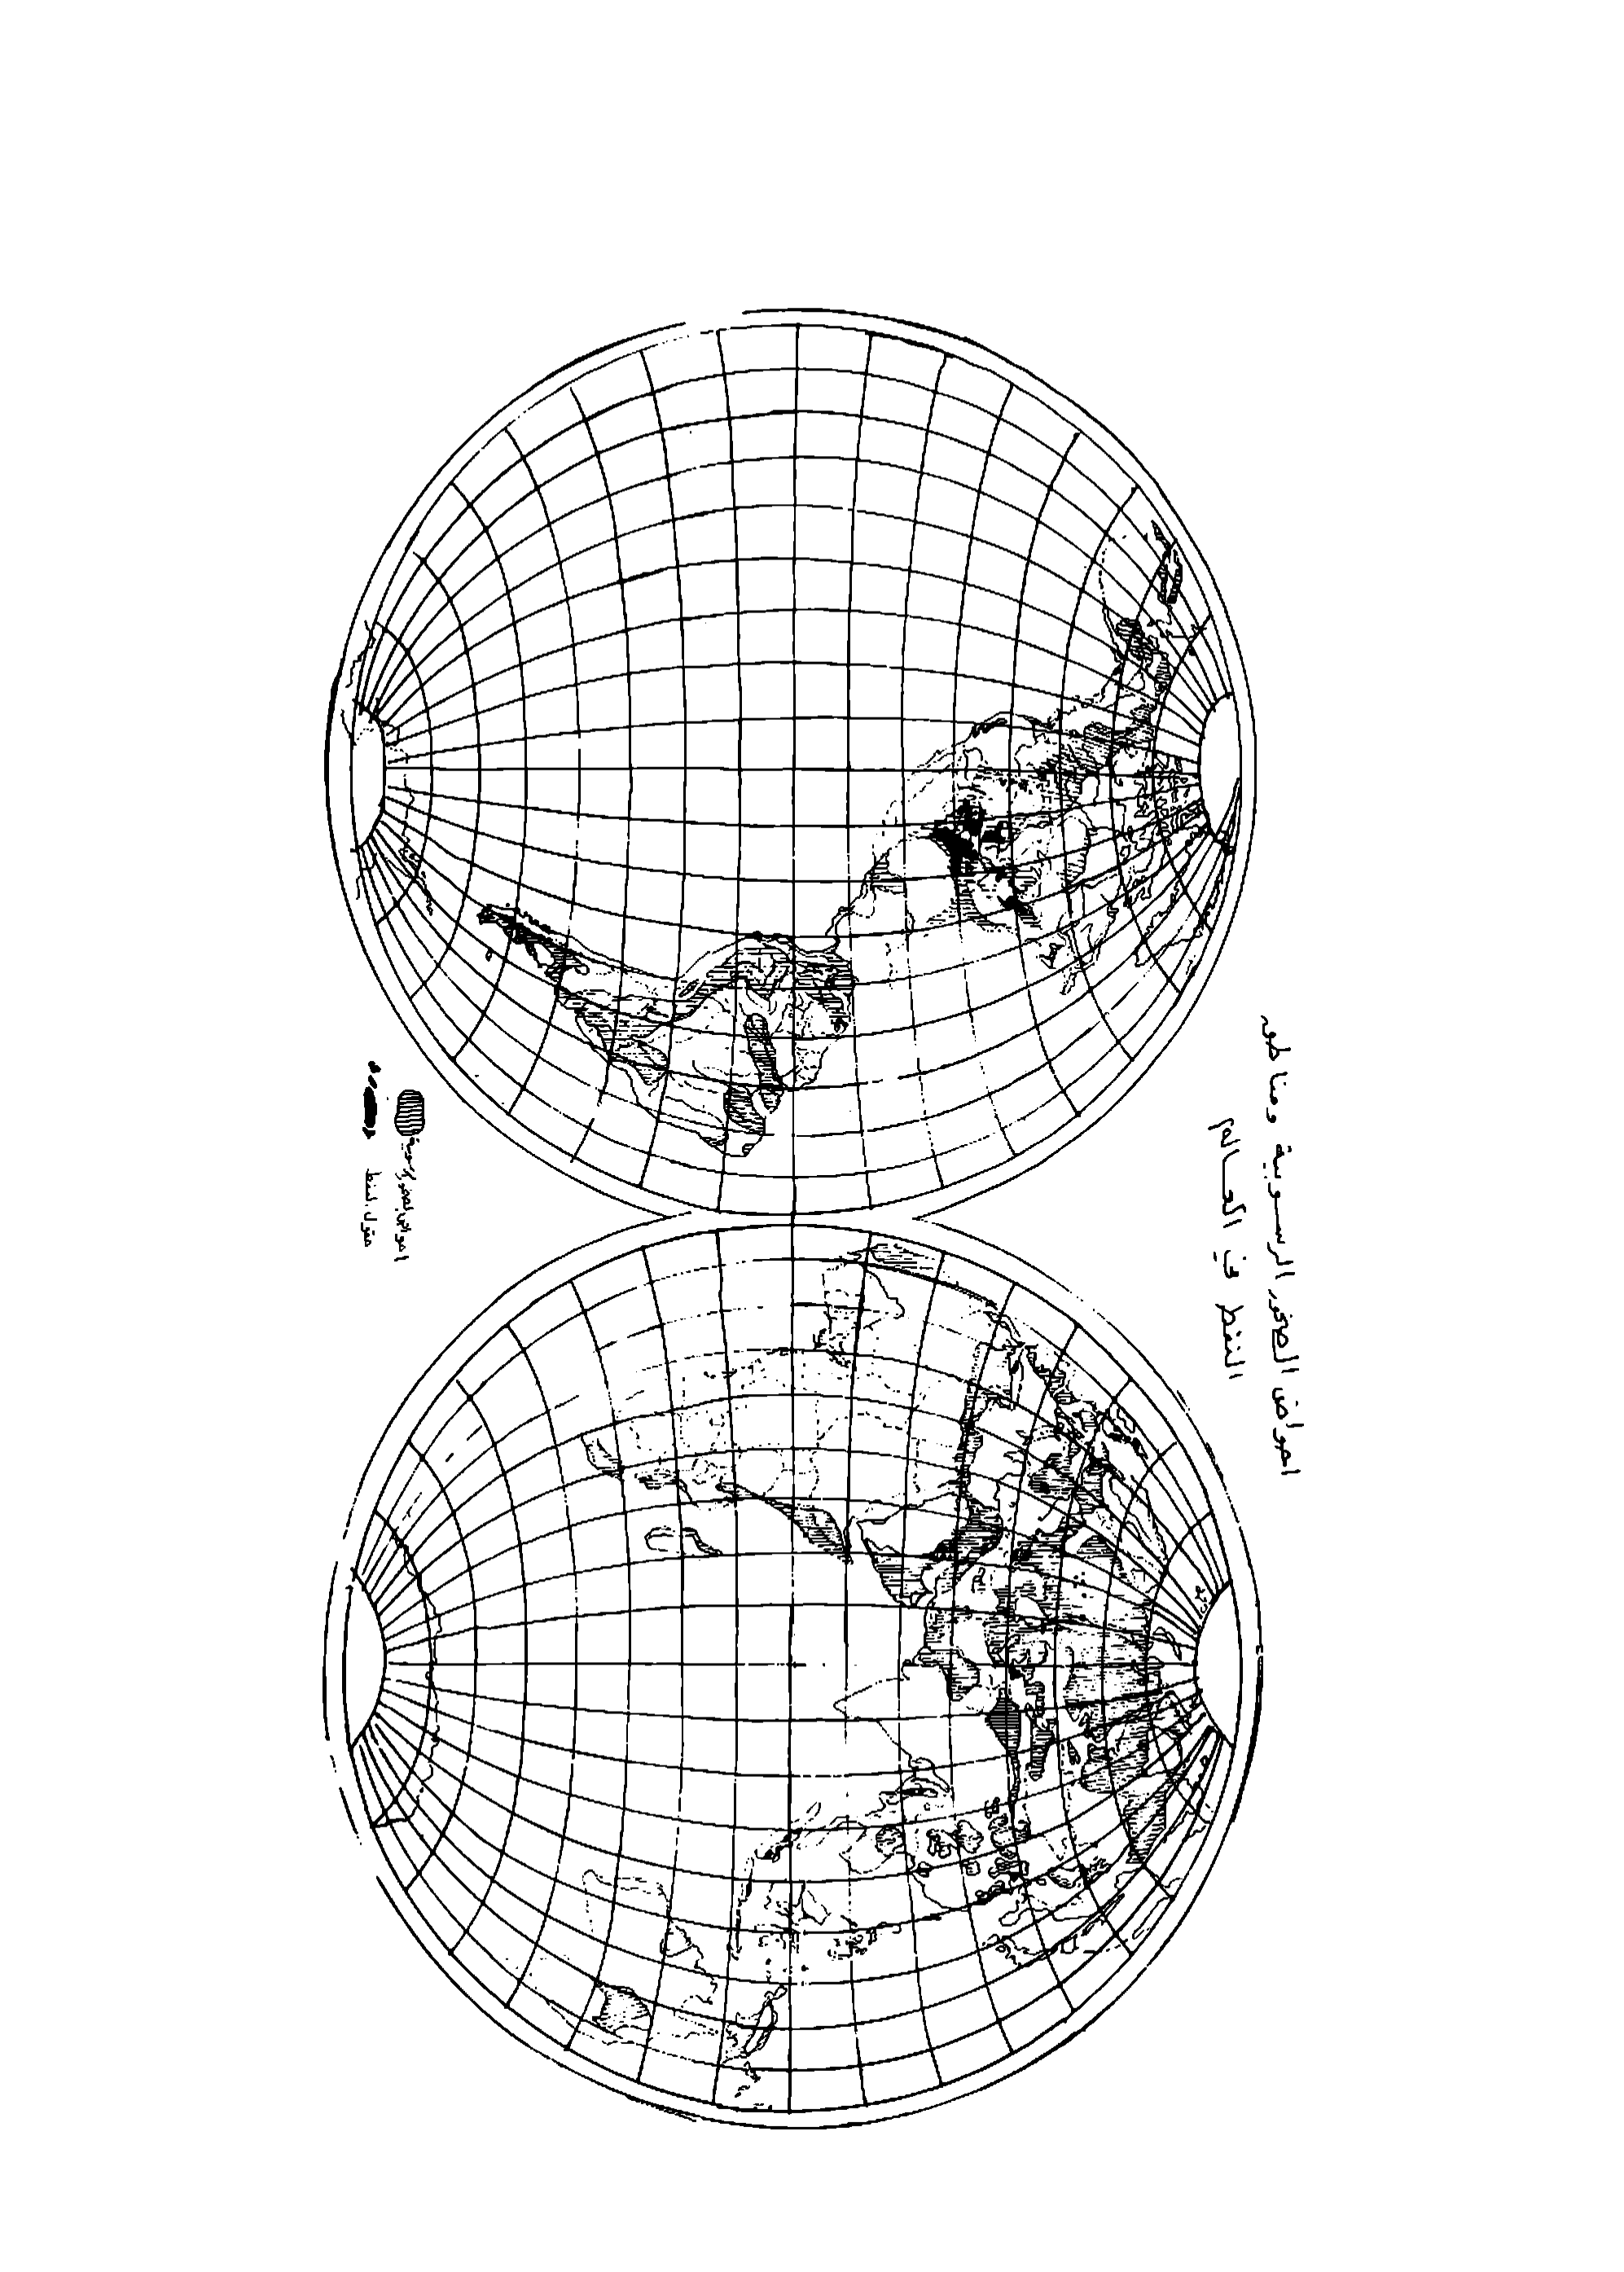 احواض الصخور الرسوبية ومناطق
النفط في العالم
احواض الصخور الرسوبية
حقول النفط